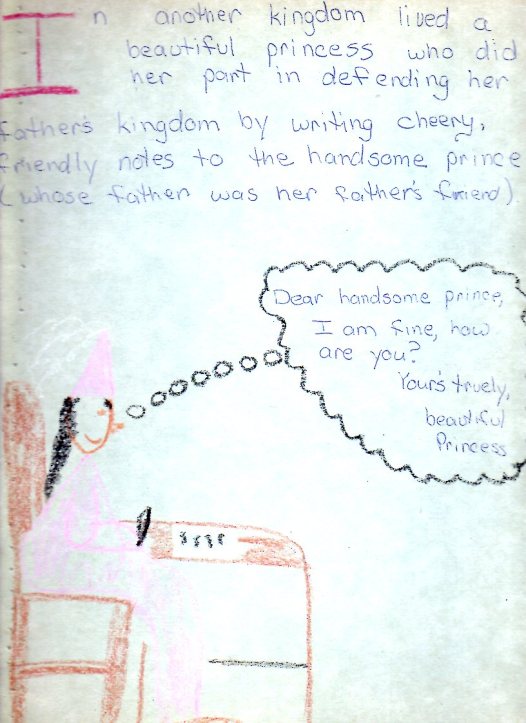 In another kingdom lived a
beautiful princess who did
her part in defending her
father's kingdom by writing cheery,
friendly notes to the handsome prince
(whose father was her father's friend).
Dear handsome prince,
I am fine, how
are you?
Your's truely,
beautiful
Princess